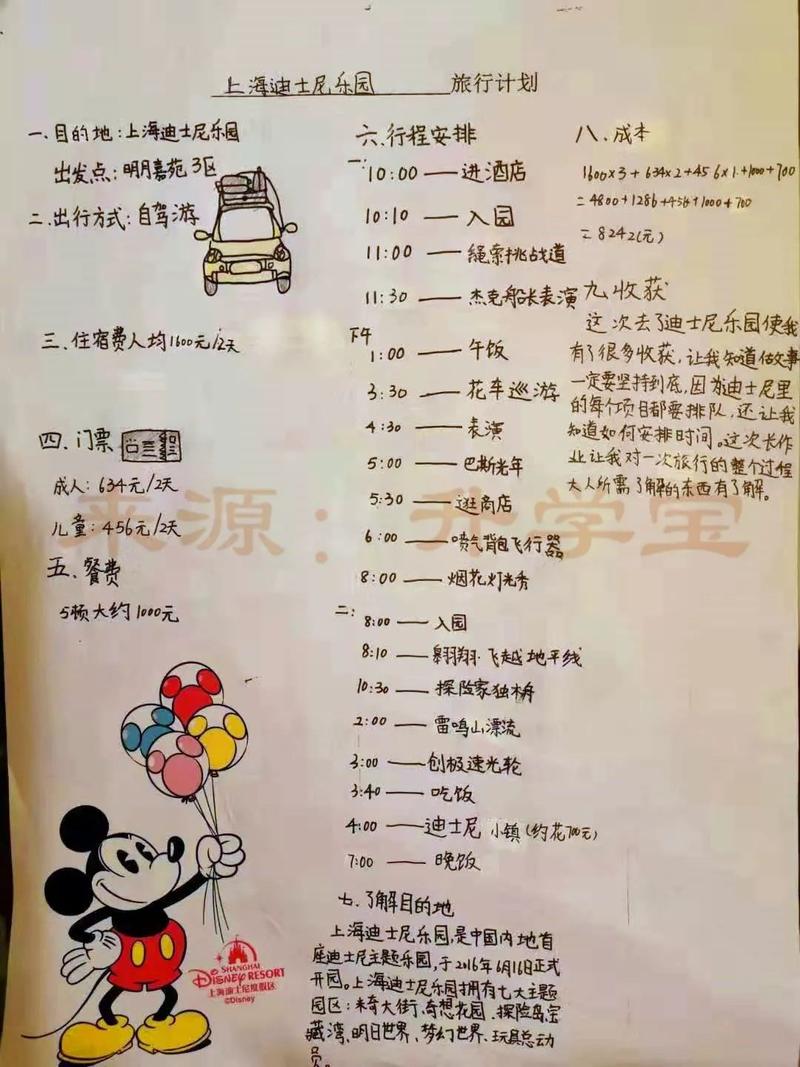 上海迪士尼乐园 旅行计划
一、目的地:上海迪士尼乐园
出发点:明月嘉苑3区
二、出行方式:自驾游
三、住宿费人均1600元/2天
四、门票
成人:634元/2天
儿童:456元/2天
五、餐费
5顿大约1000元
六、行程安排
一:
10:00——进酒店
10:10——入园
11:00——绳索挑战道
11:30——杰克船长表演
下午
1:00——午饭
3:30——花车巡游
4:30——表演
5:00——巴斯光年
5:30——逛商店
6:00——喷气背包飞行器
8:00——烟花灯光秀
二:
8:00——入园
8:10——翱翔·飞越地平线
10:30——探险家独木舟
2:00——雷鸣山漂流
3:00——创极速光轮
3:40——吃饭
4:00——迪士尼小镇(约花700元)
7:00——晚饭
七、了解目的地
上海迪士尼乐园,是中国内地首
座迪士尼主题乐园,于2016年6月16日正式
开园。上海迪士尼乐园拥有七大主题
园区:米奇大街、奇想花园、探险岛、宝
藏湾、明日世界、梦幻世界、玩具总动
员。
八、成本
1600×3+634×2+456×1+1000+700
=4800+1286+456+1000+700
=8242(元)
九、收获
这次去了迪士尼乐园使我
有了很多收获,让我知道做故事
一定要坚持到底,因为迪士尼里
的每个项目都要排队,还让我
知道如何安排时间。这次长作
业让我对一次旅行的整个过程
大人所需了解的东西有了解。
SHANGHAI
Disney RESORT
上海迪士尼度假区
©Disney
来源:升学宝